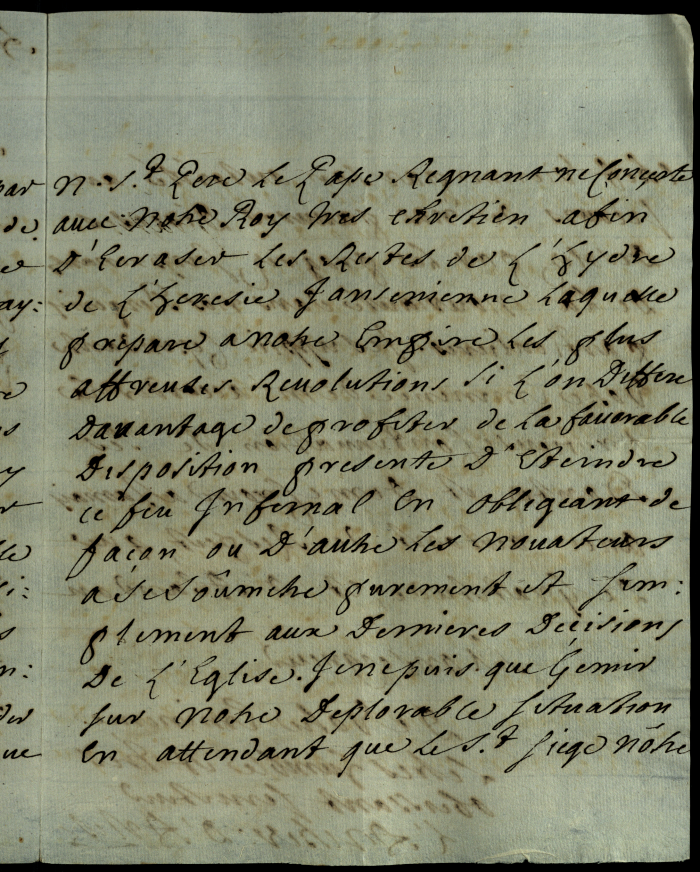 N. S.t Pere Le Pape Regnant ne Concerte
avec Notre Roy tres Chretien afin
D'Ecraser Les Restes de L'hydre
de L'heresie Jansenienne Laquelle
prepare a notre Empire Les plus
affreuses Revolutions Si L'on Differe
Davantage de profiter de La favorable
Disposition presente D'Eteindre
ce feu Infernal En obligeant de
façon ou D'autre Les Novateurs
a se Soûmetre purement et Sim:
plement aux Dernieres Décisions
De L'Eglise. Je ne puis que Gemir
sur notre Deplorable situation
En attendant que Le S.t Siege nôtre
par
de
ay: